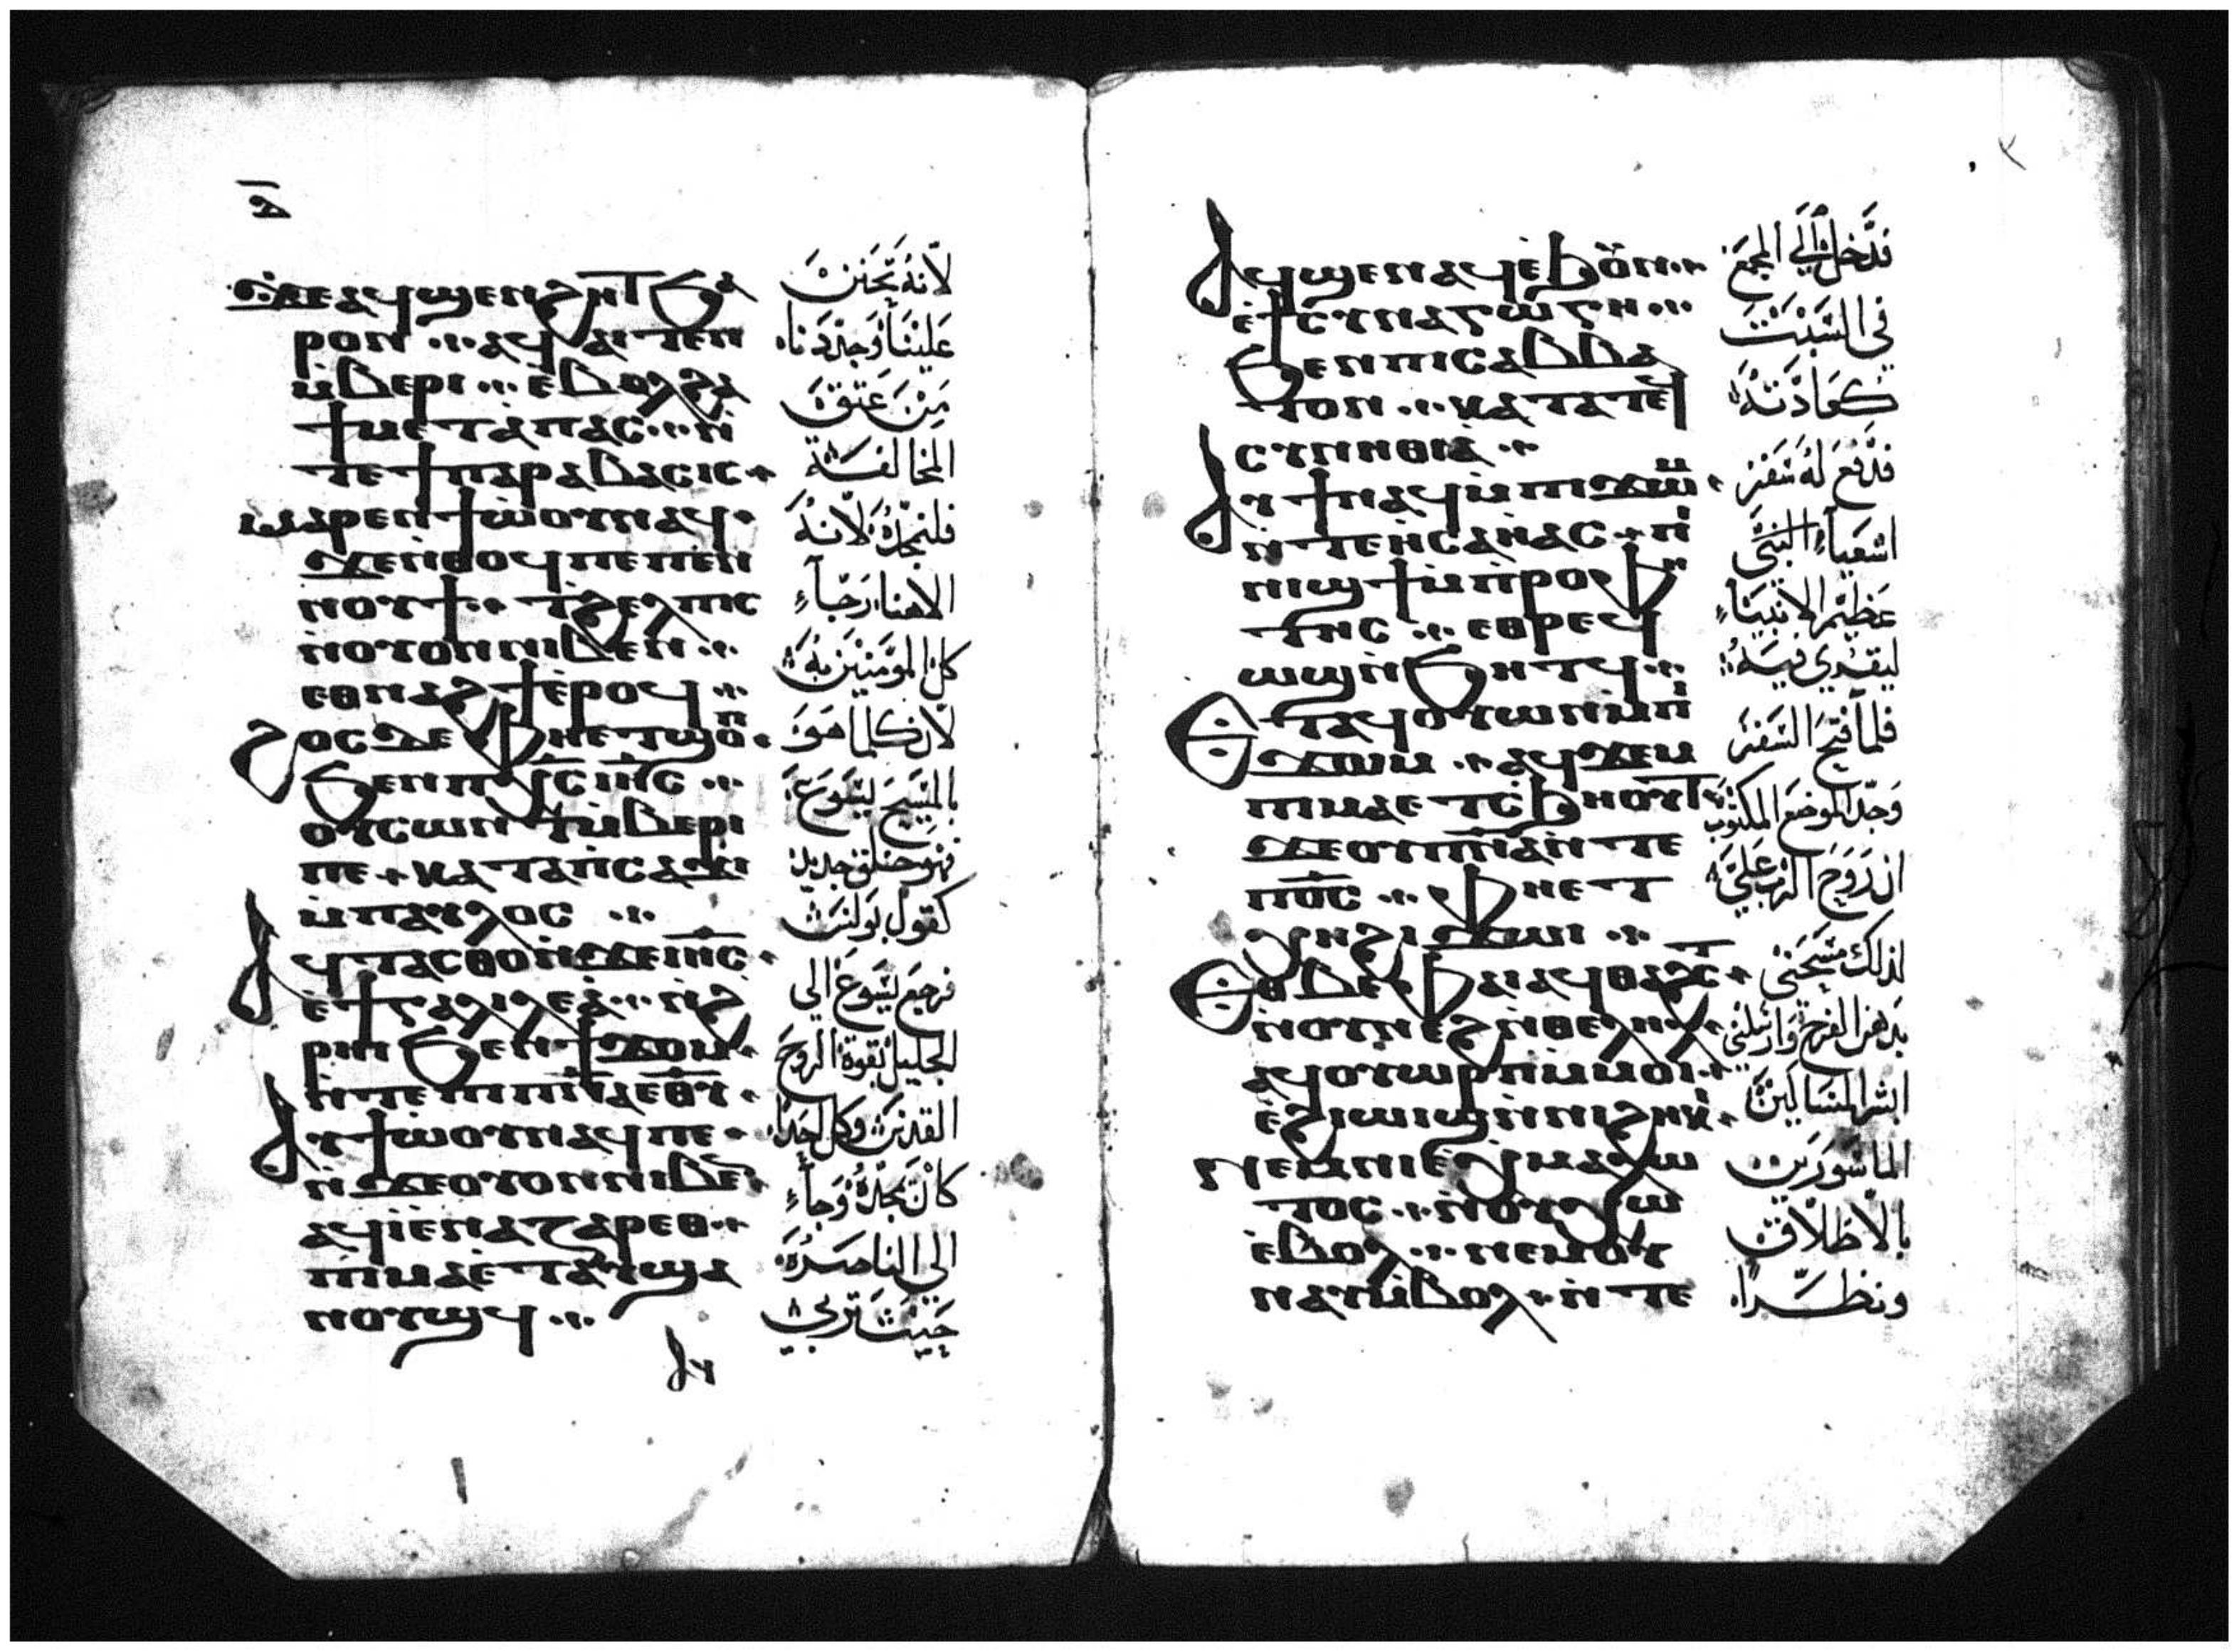 ⲇ̅
ϫⲉ ⲁϥϣⲉⲛϩⲏⲧ ϧⲁ
ⲣⲟⲛ ⁖ ⲁϥⲁⲓⲧⲉⲛ
ⲙ̀ⲃⲉⲣⲓ ⁖ ⲉ̀ⲃⲟⲗϩⲁ
ϯⲙⲉⲧⲁ̀ⲡⲁⲥ ⁖ ⲛ̀
ⲧⲉϯⲡⲁⲣⲁⲃⲁⲥⲓⲥ
ⲙⲁⲣⲉⲛϯⲱ̀ⲟⲩⲛⲁϥ
ϫⲉⲛ̀ⲑⲟϥⲡⲉⲡⲉⲛ
ⲛⲟⲩϯ ⁖ ⲧ̀ϩⲉⲗⲡⲓⲥ
ⲛ̀ⲟⲩⲟⲛⲛⲓⲃⲉⲛ ⁖
ⲉⲑⲛⲁϩϯⲉ̀ⲣⲟϥ ⁖
ϩⲟⲥϫⲉ ⲫⲏⲉⲧϣⲟⲡ
ϧⲉⲛⲡⲭ̅ⲥ̅ ⲓⲏ̅ⲥ̅ ⁖
ⲟⲩⲥⲱⲛⲧⲙ̀ⲃⲉⲣⲓ
ⲡⲉ ⲕⲁⲧⲁⲡ̀ⲥⲁϫⲓ
ⲙ̀ⲡⲁⲩⲗⲟⲥ ⁖
ⲁϥⲧⲁⲥⲑⲟⲛ̀ϫⲉⲓⲏ̅ⲥ̅
ⲉ̀ϯⲅⲁⲗⲓⲗⲉⲁ̀ ⁖ ⲛ̀ϩ̀
ⲣⲏⲓϧⲉⲛϯϫⲟⲙ
ⲛ̀ⲧⲉⲡⲓⲡ̅ⲛ̅ⲁ̅ⲉⲑⲩ
ⲁⲩϯⲱ̀ⲟⲩⲛⲁϥⲡⲉ
ⲛ̀ϫⲉⲟⲩⲟⲛⲛⲓⲃⲉⲛ
ⲁϥⲓ̀ⲉ̀ⲛⲁⲍⲁⲣⲉⲑ
ⲡⲓⲙⲁⲉ̀ⲧⲁⲩϣⲁ
ⲛⲟⲩϣϥ ⁖
ⲁⲩ
لانه تحنن
علينا وجددنا
من عتق
المخالفة
فلنمجده لانه
الاهنا رجاء
كل المومنين به
لان كلما هو
بالمسيح يسوع
فهو خلق جديد
كقول بولس
فرجع يسوع الي
الجليل بقوة الروح
القدس وكل احد
كان يمجده وجاء
الي الناصرة
حيث تربي
ⲁϥϣⲉⲛⲁϥⲉ̀ϧⲟⲩⲛ
ⲉ̀ϯⲥⲩⲛⲁⲅⲱⲅⲏ ⁖
ϧⲉⲛⲡⲓⲥⲁⲃⲃⲁ
ⲧⲟⲛ ⁖ ⲕⲁⲧⲁⲧⲉϥ
ⲥⲩⲛⲏⲑⲓⲁ̀
ⲁⲩϯⲛⲁϥⲙ̀ⲡⲓϫⲱⲙ
ⲛ̀ⲧⲉⲏ̀ⲥⲁⲏ̀ⲁⲥ ⲡⲓ
ⲛⲓϣϯⲙ̀ⲡ̀ⲣⲟⲫⲏ
ⲧⲏⲥ ⁖ ⲉⲑⲣⲉϥ
ⲱϣⲛ̀ϧⲏⲧϥ ⁖
ⲉⲧⲁϥⲟⲩⲱⲛⲙ̀ⲡⲓ
ϫⲱⲙ ⁖ ⲁϥϫⲉⲙ
ⲡⲓⲙⲁⲉⲧⲥ̀ϧⲏⲟⲩⲧ
ϫⲉⲟⲩⲡ̅ⲛ̅ⲁ̅ⲛ̀ⲧⲉ
ⲡⲟ̅ⲥ̅ ⁖ ⲫⲏⲉⲧ
ⲭⲏϩⲓϫⲱⲓ ⁖
ⲉⲑⲃⲉⲫⲁⲓⲁϥⲑⲁϩⲥⲧ
ⲛ̀ⲟⲩⲛⲉϩⲛ̀ⲑⲉⲗⲏⲗ
ⲁϥⲟⲩⲱⲣⲡⲙ̀ⲙⲟⲓ
ⲉ̀ϩⲓϣⲉⲛⲛⲓϩⲏⲕⲓ
ⲛⲉⲙⲛⲓⲉ̀ⲭⲙⲁⲗⲱ
ⲧⲟⲥ ⁖ ⲛ̀ⲟⲩⲭⲱ
ⲉ̀ⲃⲟⲗ ⁖ ⲛⲉⲙⲟⲩ
ⲛⲁⲩⲙ̀ⲃⲟⲗ ⲛ̀ⲧⲉ
فدخل الي المجمع
في السبت
كعادته
فدفع له سفر
اشعياء النبي
عظيم الانبياء
ليقري فيه
فلما فتح السفر
وجد الموضع المكتوب
ان روح الرب علي
لذلك مسحني
بدهن الفرح وارسلني
ابشر المساكين
الماسورين
بالاطلاق
ونظرا